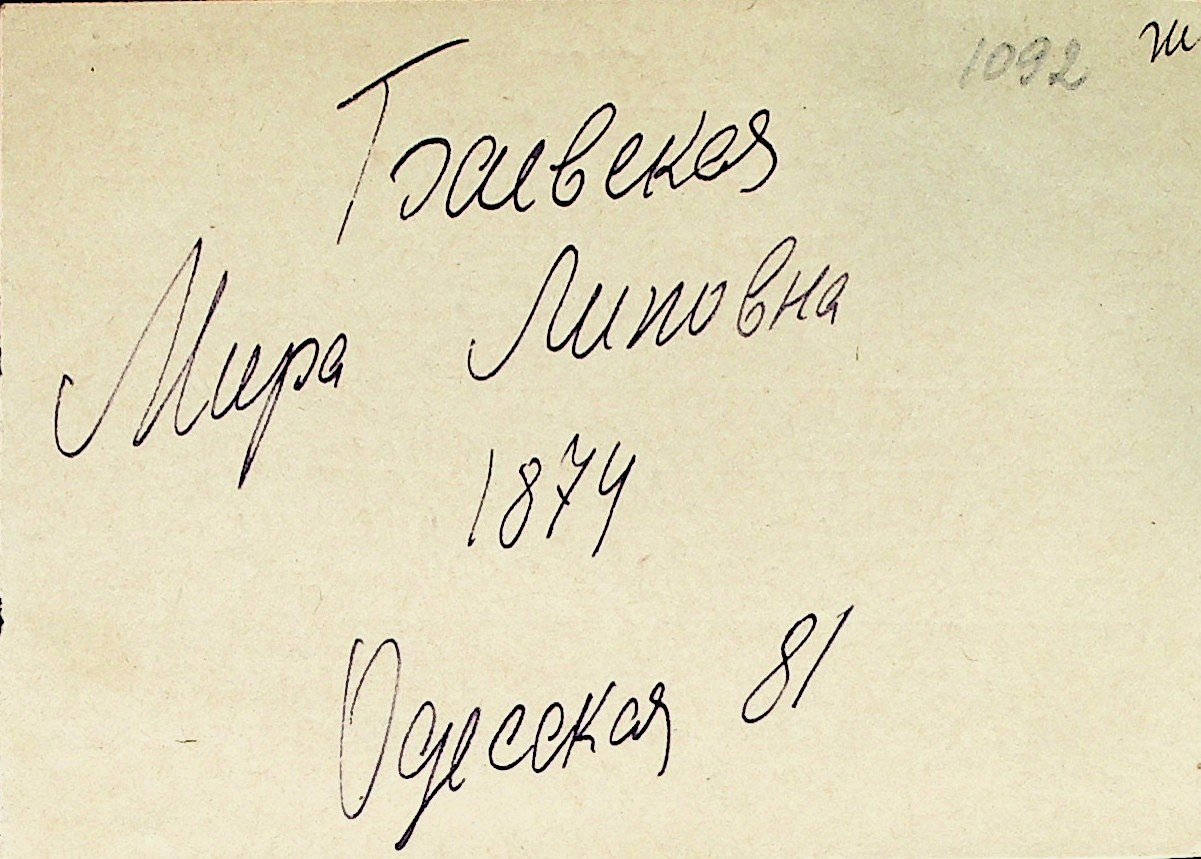 1092
Мира Липовна
1874
Одесская 81